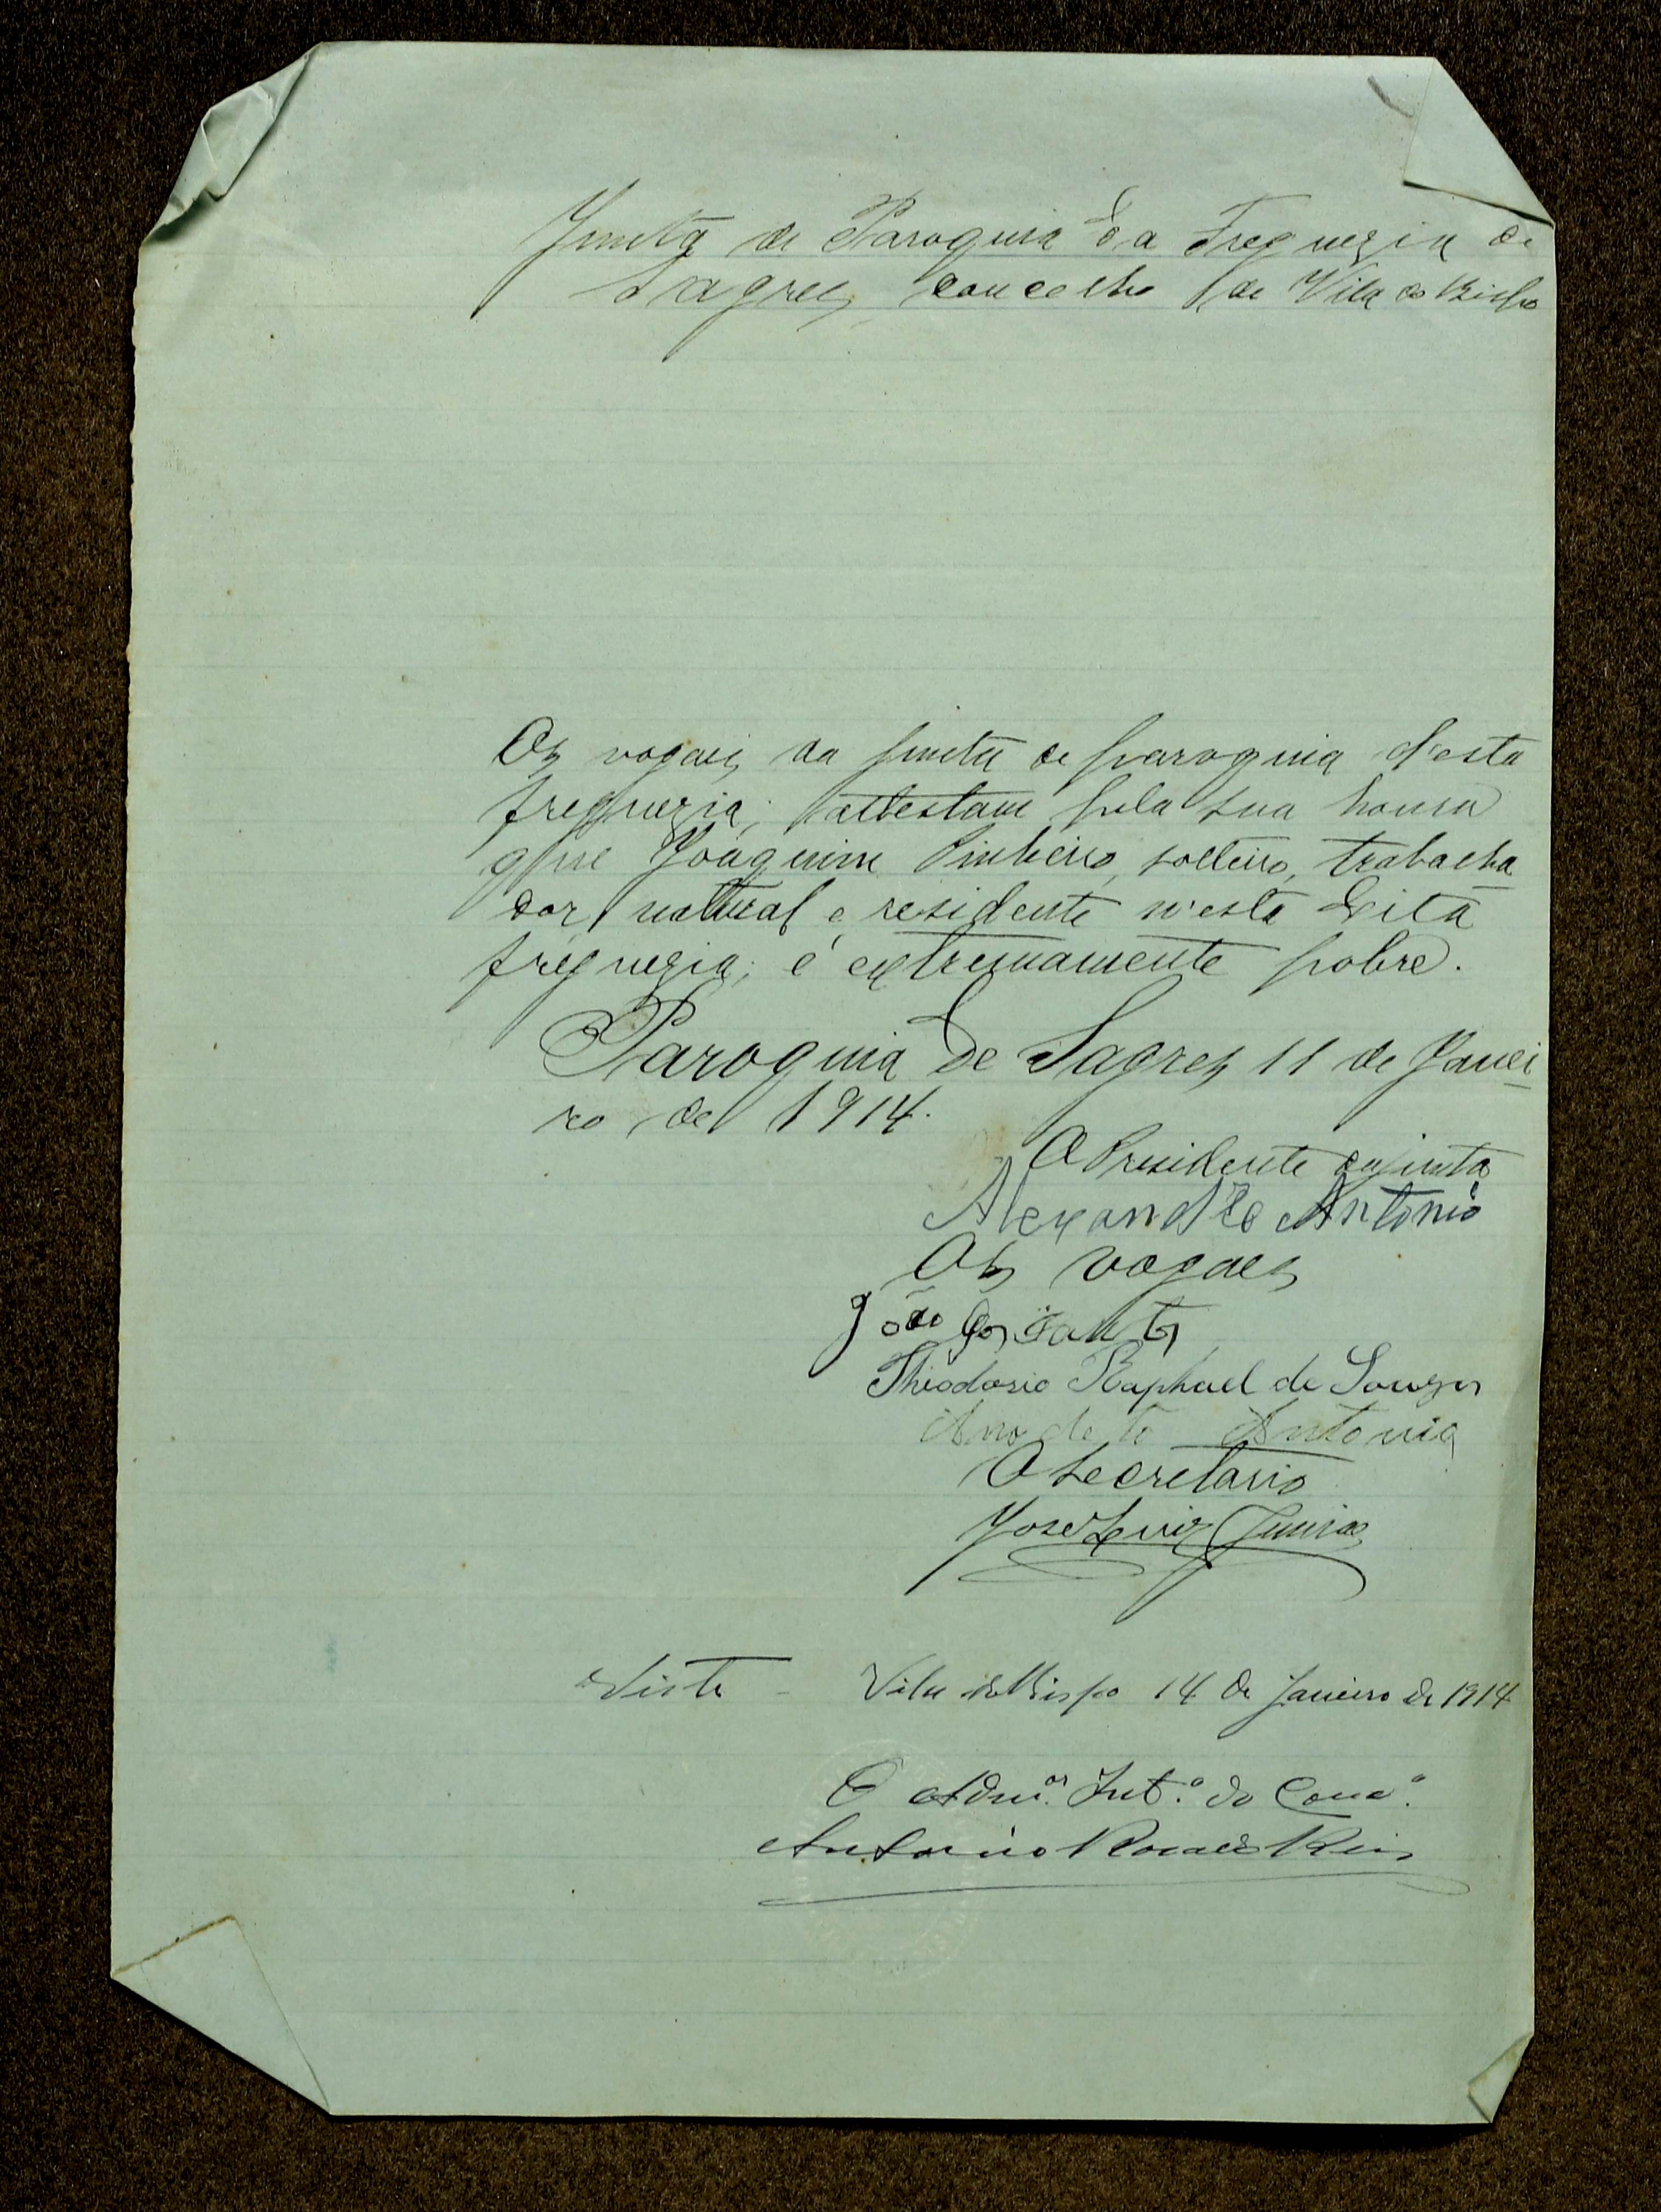 Junta de Paroquia da Freguezia de
Sagres, concelho de Vila do Bispo
Os vogais da junta de paroquia d'esta
freguezia; attestam pela sua honra
que Joaquim Pinheiro, solteiro, trabalha
dor, natural e residente n'esta dita
freguezia; é extremamente pobre.
Paroquia de Sagres 11 de Janei
ro de 1914.
O Presidente da junta
Alexandre Antonio
Os vogaes
João dos Santos
Theodosio Raphael de Souza
Antonio
O Secretario
José Luiz Junior
Visto - Vila do Bispo 14 de Janeiro de 1914
O Adm.or Int.o do Conc.o
Antonio Reis